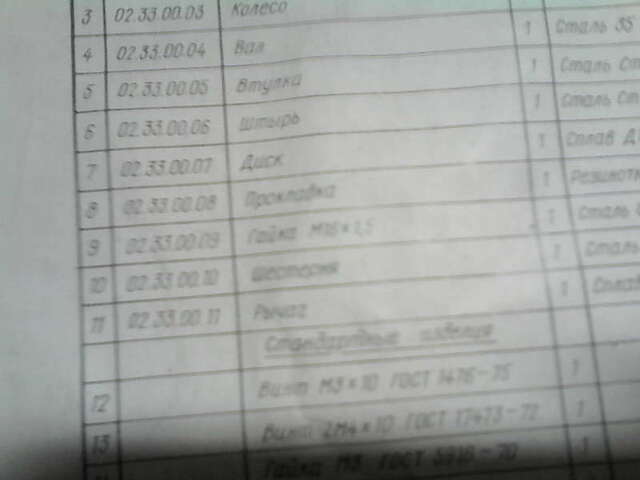 3 02.33.00.03 Колесо
4 02.33.00.04 Вал 1 Сталь 35
5 02.33.00.05 Втулка 1 Сталь Ст
6 02.33.00.06 Штырь 1 Сталь Ст
7 02.33.00.07 Диск 1 Сплав Д
8 02.33.00.08 Прокладка 1
9 02.33.00.09 Гайка М16×1,5 1 Сталь
10 02.33.00.10 Шестерня 1 Сталь
11 02.33.00.11 Рычаг 1 Сплав
Стандартные изделия
12 Винт М3×10 ГОСТ 1476-75 1
13 Винт 2М4×10 ГОСТ 17473-72 1
Гайка М3 ГОСТ 5916-70 1